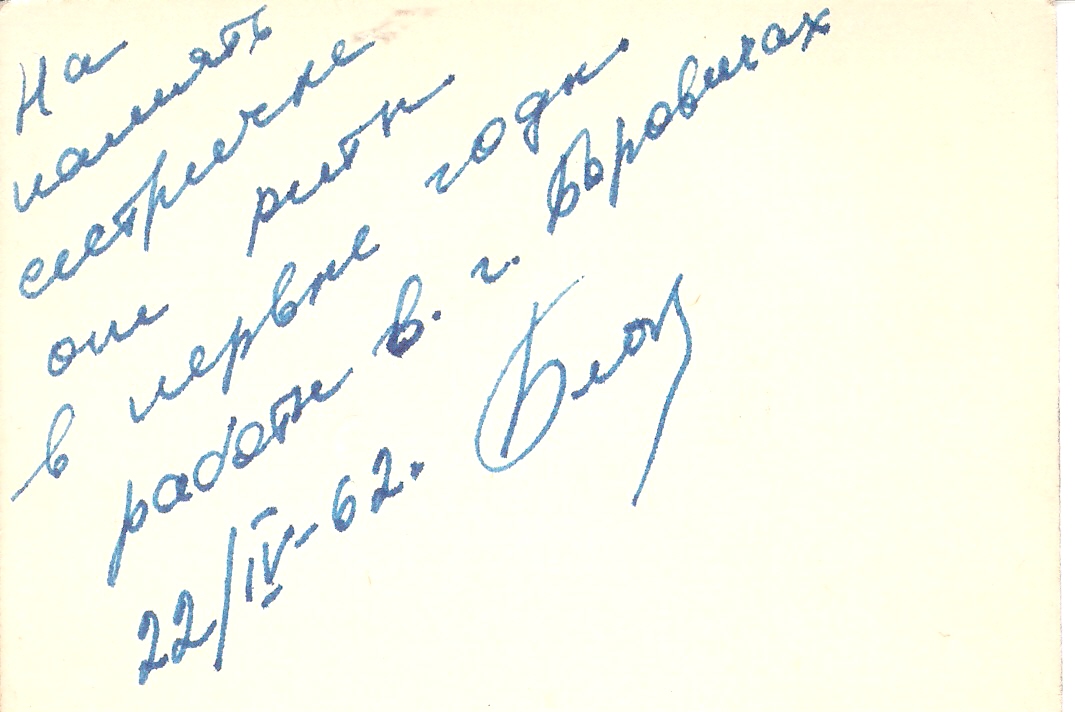 На
память
сестричке
риты.
в первые годы.
работы в. г. Боровичах
22/IV-62.